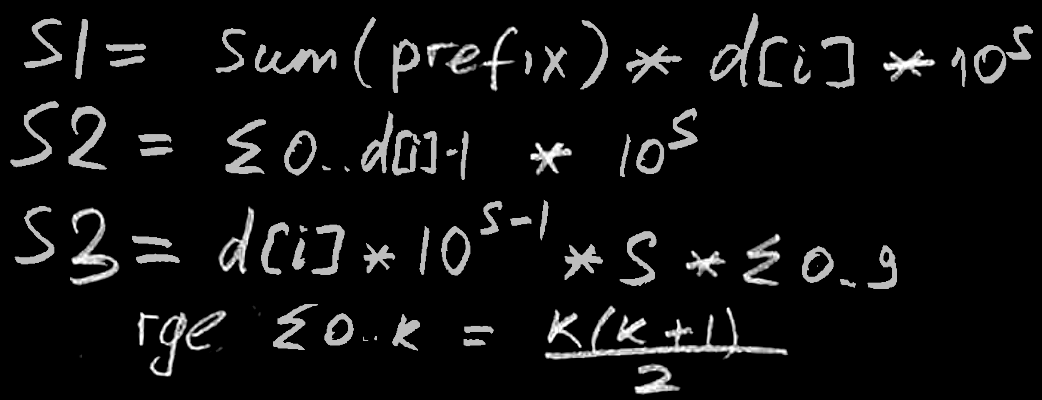 S1 = Sum(prefix) * d[i] * 10^S
S2 = Σ 0..d[i]-1 * 10^S
S3 = d[i] * 10^(S-1) * S * Σ 0..9
где Σ 0..k = k(k+1)/2